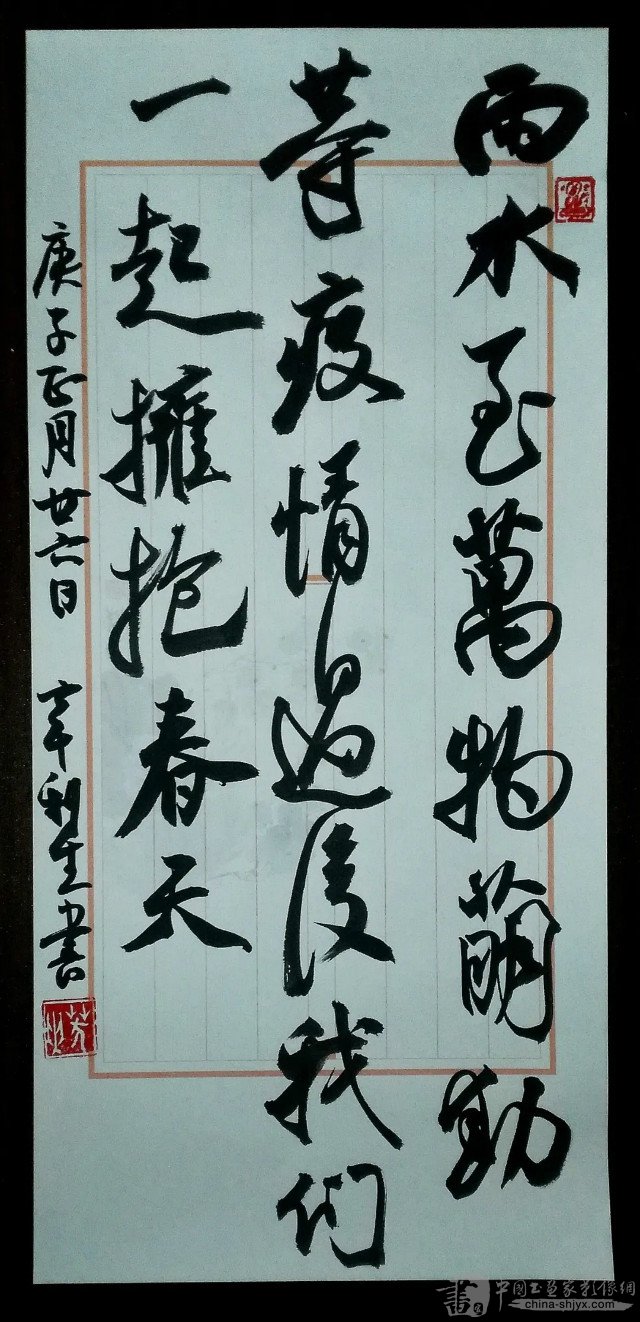 雨水至萬物萌動
等疫情過後我们
一起擁抱春天
庚子正月廿六日 辛利生書
書
中國书画家影像網
china-shjyx.com